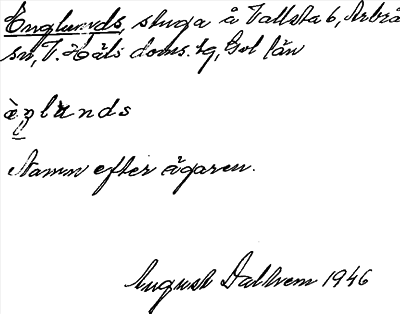 Englunds, stuga å Vallsta 6, Arbrå
sn, V. Häls doms. hg, Gvl län
èŋlùnds
Namn efter ägaren.
August Dalhem 1946